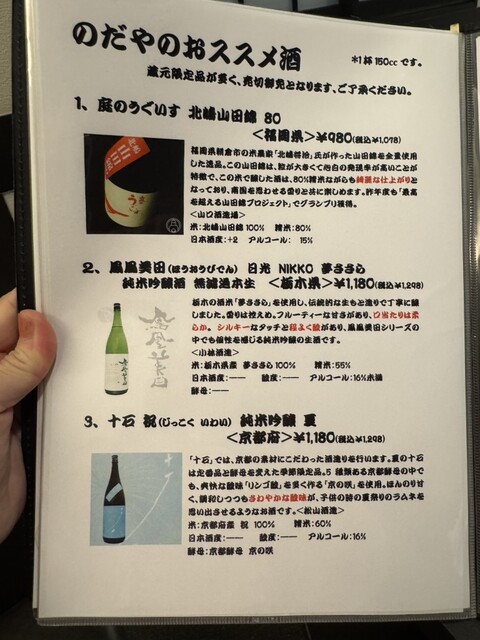 のだやのおススメ酒
*1杯150ccです。
蔵元限定品が多く、売切御免となります、ご了承ください。
1、庭のうぐいす 北嶋山田錦 80
<福岡県>￥980(税込￥1,078)
福岡県朝倉市の米農家「北嶋将治」氏が作った山田錦を全量使用
した逸品。この山田錦は、粒が大きくて心白の発現率が高いことが
特徴で、この米で醸した酒は、80%精米ながらも綺麗な仕上がりと
なっており、南国を思わせる香りと共に楽しめます。昨年度も「最高
を超える山田錦プロジェクト」でグランプリ獲得。
<山口酒造場>
米:北嶋山田錦 100% 精米:80%
日本酒度:+2 アルコール: 15%
2、鳳凰美田(ほうおうびでん) 日光 NIKKO 夢ささら
純米吟醸酒 無濾過本生 <栃木県>￥1,180(税込￥1,298)
鳳凰美田
栃木の酒米「夢ささら」を使用し、伝統的な生もと造りで丁寧に醸
しました。香りは控えめ。フルーティーな甘さがあり、口当たりは柔
らか。シルキーなタッチと程よく酸があり、鳳凰美田シリーズの
中でも個性を感じる純米吟醸の生酒です。
<小林酒造>
米:栃木県産 夢ささら 100% 精米:55%
日本酒度:―― 酸度:―― アルコール:16%未満
酵母:――
3、十石 祝(じっこく いわい) 純米吟醸 夏
<京都府>￥1,180(税込￥1,298)
「十石」では、京都の素材にこだわった酒造りを行います。夏の十石
は定番品と酵母を変えた季節限定品。5種類ある京都酵母の中で
も、爽快な酸味「リンゴ酸」を多く作る「京の咲」を使用。ほんのり甘
く、調和しつつもさわやかな酸味が、子供の時の夏祭りのラムネを
思い出させるようなお酒です。<松山酒造>
米:京都府産 祝 100% 精米:60%
日本酒度:―― 酸度:―― アルコール:16%
酵母:京都酵母 京の咲